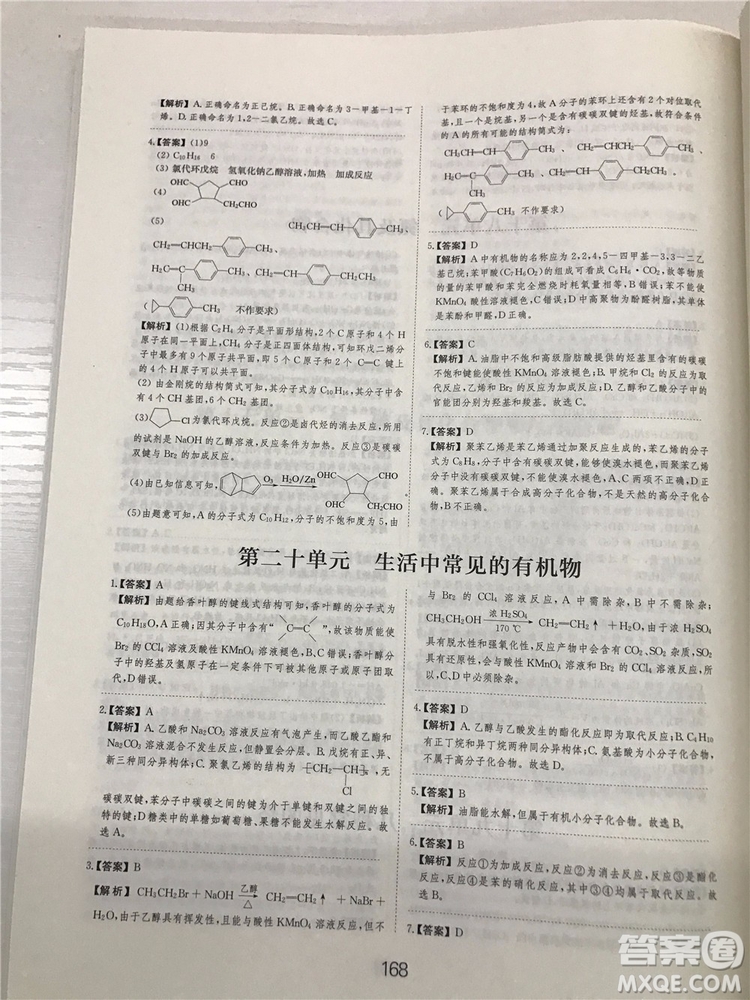 【解析】A.正确命名为正己烷。B.正确命名为3-甲基-1-丁
烯。D.正确命名为1,2-二氯乙烷。故选C。
4.【答案】(1)9
(2)C₁₀H₁₆ 6
(3)氯代环戊烷 氢氧化钠乙醇溶液,加热 加成反应
(4) OHC CHO
OHC CH₂CHO
(5) CH₃CH=CH CH₃
CH₂=CHCH₂ CH₃
H₂C=C CH₃ CH₂=CH CH₂CH₃
CH₃
( CH₃ 不作要求)
【解析】(1)根据C₂H₄分子是平面形结构,2个C原子和4个H
原子在同一个平面上,CH₄分子是正四面体结构,可知环戊二烯分
子中最多有9个原子共平面,即5个C原子和2个C=C键上的
4个H原子可以共平面。
(2)由金刚烷的结构可知,其分子式为C₁₀H₁₆,其分子中含
有4个CH基团,6个CH₂基团。
(3) Cl为氯代环戊烷。反应②是卤代烃的消去反应,所用
的试剂是NaOH的乙醇溶液,反应条件为加热。反应③是碳碳
双键与Br₂的加成反应。
(4)由已知信息可知, O₃ H₂O/Zn OHC CHO
OHC CH₂CHO
(5)由题意可知,A的分子式为C₁₀H₁₂,分子的不饱和度为5,由
于苯环的不饱和度为4,故A分子的苯环上还含有2个对位取代
基,且一个是烷基,另一个是含有碳碳双键的烃基,故符合条件
的A的所有可能的结构简式为:
CH₃CH=CH CH₃、CH₂=CHCH₂ CH₃、
H₂C=C CH₃、CH₂=CH CH₂CH₃
CH₃
( CH₃ 不作要求)
5.【答案】D
【解析】A中有机物的名称应为2,2,4,5-四甲基-3,3-二乙
基己烷;苯甲酸(C₇H₆O₂)的组成可看成C₆H₆·CO₂,故等物质
的量的苯甲酸和苯完全燃烧时耗氧量相等,B错误;苯不能使
KMnO₄酸性溶液褪色,C错误;D中高聚物为酚醛树脂,其单体
为苯酚和甲醛,D正确。
6.【答案】C
【解析】A.油脂中不饱和高级脂肪酸提供的烃基里含有的碳碳
不饱和键能使酸性KMnO₄溶液褪色。B.甲烷和Cl₂的反应为取
代反应,乙烯和Br₂的反应为加成反应。D.乙醇和乙酸中含有的
官能团分别为羟基和羧基。故选C。
7.【答案】D
【解析】聚苯乙烯是苯乙烯通过加聚反应生成的。苯乙烯的分子
式为C₈H₈,分子中含有碳碳双键,能够使溴水褪色,而聚苯乙烯
分子中没有碳碳双键,不能使溴水褪色,A、C两项不正确,D项正
确。聚苯乙烯属于合成高分子化合物,不是天然的高分子化合物,
B不正确。
第二十单元 生活中常见的有机物
1.【答案】A
【解析】由题给香叶醇的键线式结构可知,香叶醇的分子式为
C₁₀H₁₈O,A正确;因其分子中含有“ C=C ”,故该物质能使
Br₂的CCl₄溶液及酸性KMnO₄溶液褪色,B、C错误;该物质分
子中的羟基及氢原子在一定条件下可被其他原子或原子团取
代,D错误。
2.【答案】A
【解析】A.乙酸和Na₂CO₃溶液反应有气泡产生,而乙酸乙酯与
Na₂CO₃溶液混合不发生反应,但静置会分层。B.戊烷有正、异、
新三种同分异构体。C.聚氯乙烯的结构为 [CH₂-CH]ₙ,无
Cl
碳碳双键,苯分子中碳碳之间的键为介于单键和双键之间的独
特的键;D糖类中的单糖如葡萄糖、果糖不能发生水解反应。故
选A。
3.【答案】B
【解析】CH₃CH₂Br+NaOH 乙醇 △ CH₂=CH₂↑+NaBr+
H₂O,由于乙醇具有挥发性,且能与酸性KMnO₄溶液反应,但不
与Br₂的CCl₄溶液反应,A中需除杂,B中不需除杂。
CH₃CH₂OH 浓H₂SO₄ 170℃ CH₂=CH₂↑+H₂O,由于浓H₂SO₄
具有脱水性和强氧化性,反应产物中会有CO₂、SO₂生成,其中
SO₂能还原酸性KMnO₄溶液和Br₂的CCl₄溶液,需除杂,所
以,C、D错误。
4.【答案】D
【解析】A.乙醇与乙酸发生的酯化反应即为取代反应;B.C₄H₁₀
有正丁烷和异丁烷两种同分异构体;C.氨基酸为小分子化合物,
不属于高分子化合物。故选D。
5.【答案】B
【解析】油脂能水解,但属于有机小分子化合物。
6.【答案】B
【解析】反应①为加成反应,反应②为消去反应,反应③是酯化
反应,反应④是苯的硝化反应,其中③④均属于取代反应。
7.【答案】D
168
答案圈
MXQE.COM